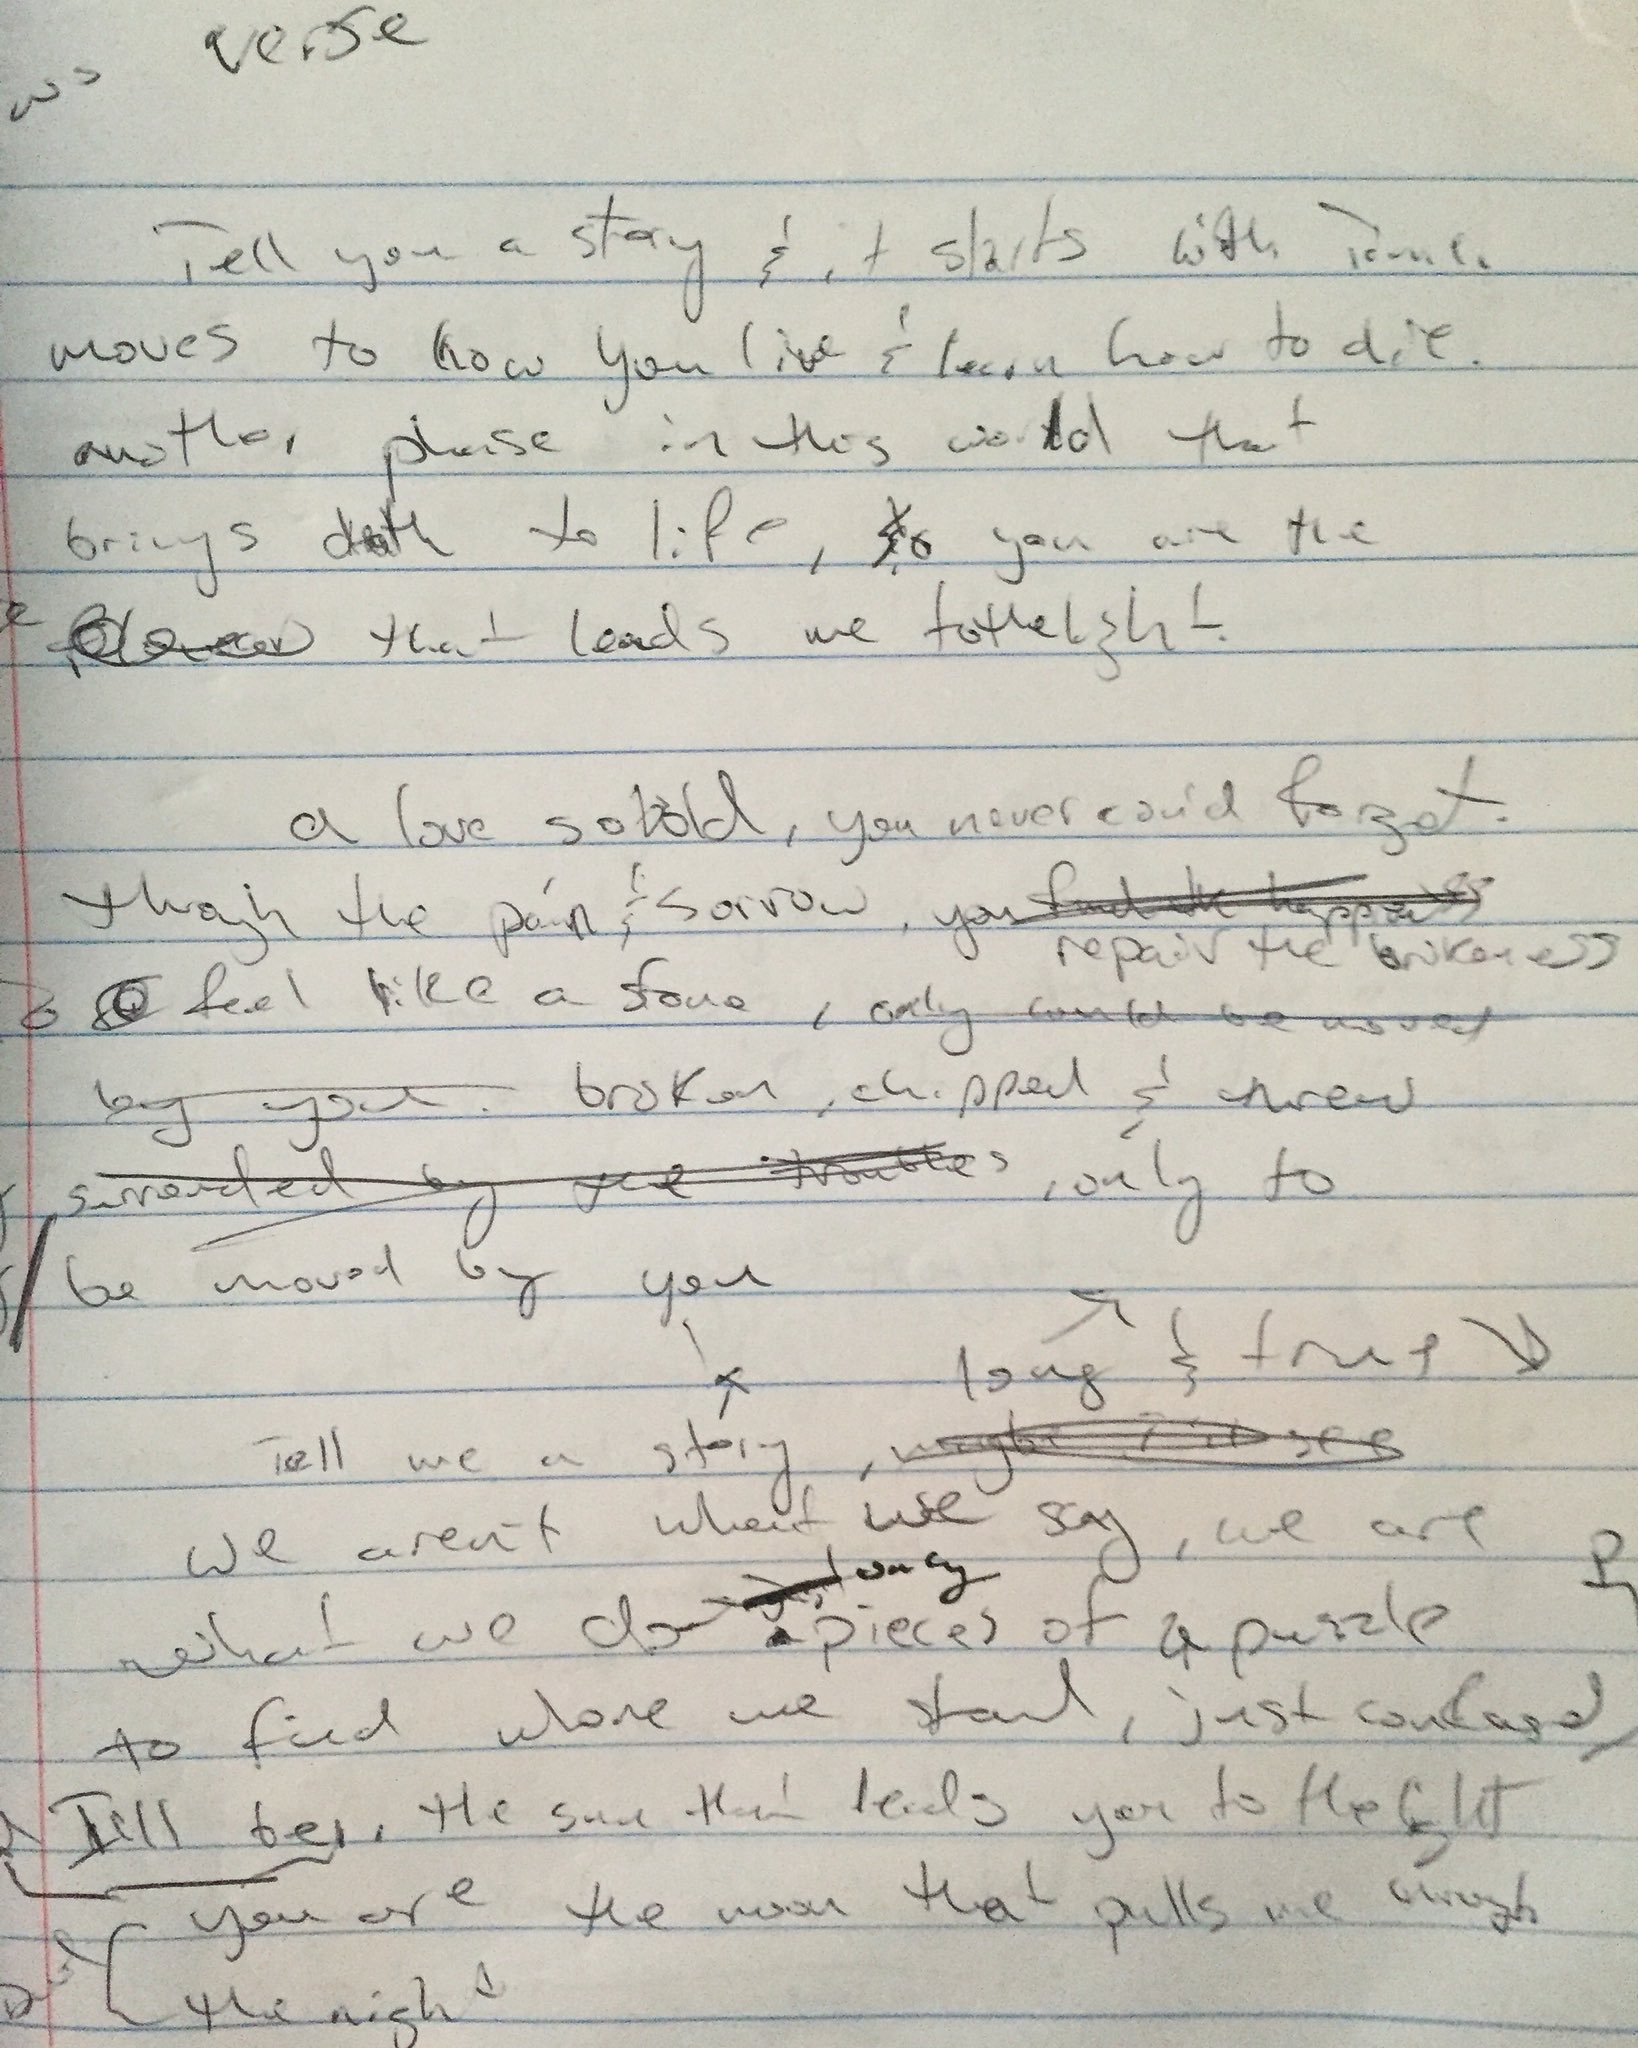 verse
Tell you a story & it starts with Time.
moves to how you live & learn how to die.
another phase in this world that
brings death to life, you are the
that leads me to the light.
a love so told, you never could forget.
through the pain & sorrow, you find the happiness
repair the brokeness
feel like a stone, only could be moved
by you. broken, chipped & threw
surrounded by the troubles, only to
be moved by you
long & true
Tell me a story, maybe I'll see
we aren't what we say, we are
what we do pieces of a puzzle
to find where we stand, just confused
I'll be, the sun that leads you to the light
you are the moon that pulls me through
the night